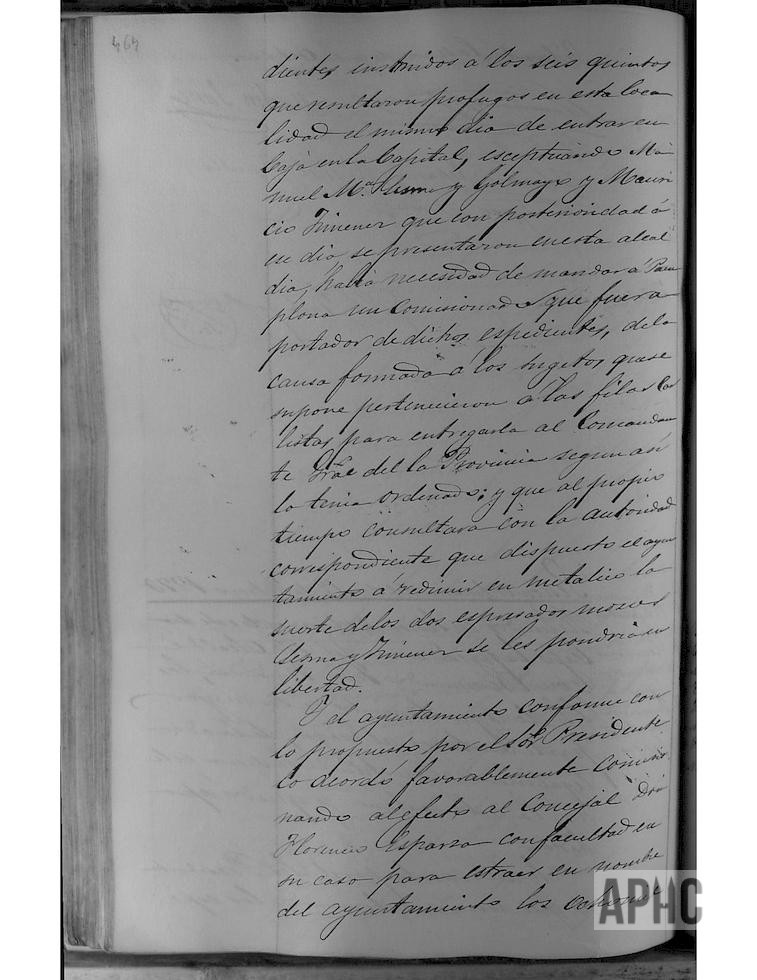 464
dientes instruidos á los seis quintos
que resultaron profugos en esta loca
lidad el mismo dia de entrar en
Caja en la Capital, esceptuando Ma
nuel M.ª Lerma y Gólmayo y Mauri
cio Jimenez que con posterioridad á
ese dia se presentaron en esta alcal
dia, habia necesidad de mandar á Pam
plona un Comisionado que fuera
portador de dichos espedientes, de la
causa formada á los sugetos que se
supone pertenecieron á las filas Car
listas para entregarla al Comandan
te Gral de la Provincia segun así
lo tenia ordenado; y que al propio
tiempo consultara con la autoridad
correspondiente que dispuesto el ayun
tamiento á redimir en metalico la
suerte de los dos espresados mozos
Lerma y Jimenez se les pondria en
libertad.
Y el ayuntamiento conforme con
lo propuesto por el Sor Presidente
lo acordó favorablemente comisio
nando al efecto al Concejal Don
Florencio Esparza con facultad en
su caso para estraer en nombre
del ayuntamiento los ocho mil
APHC